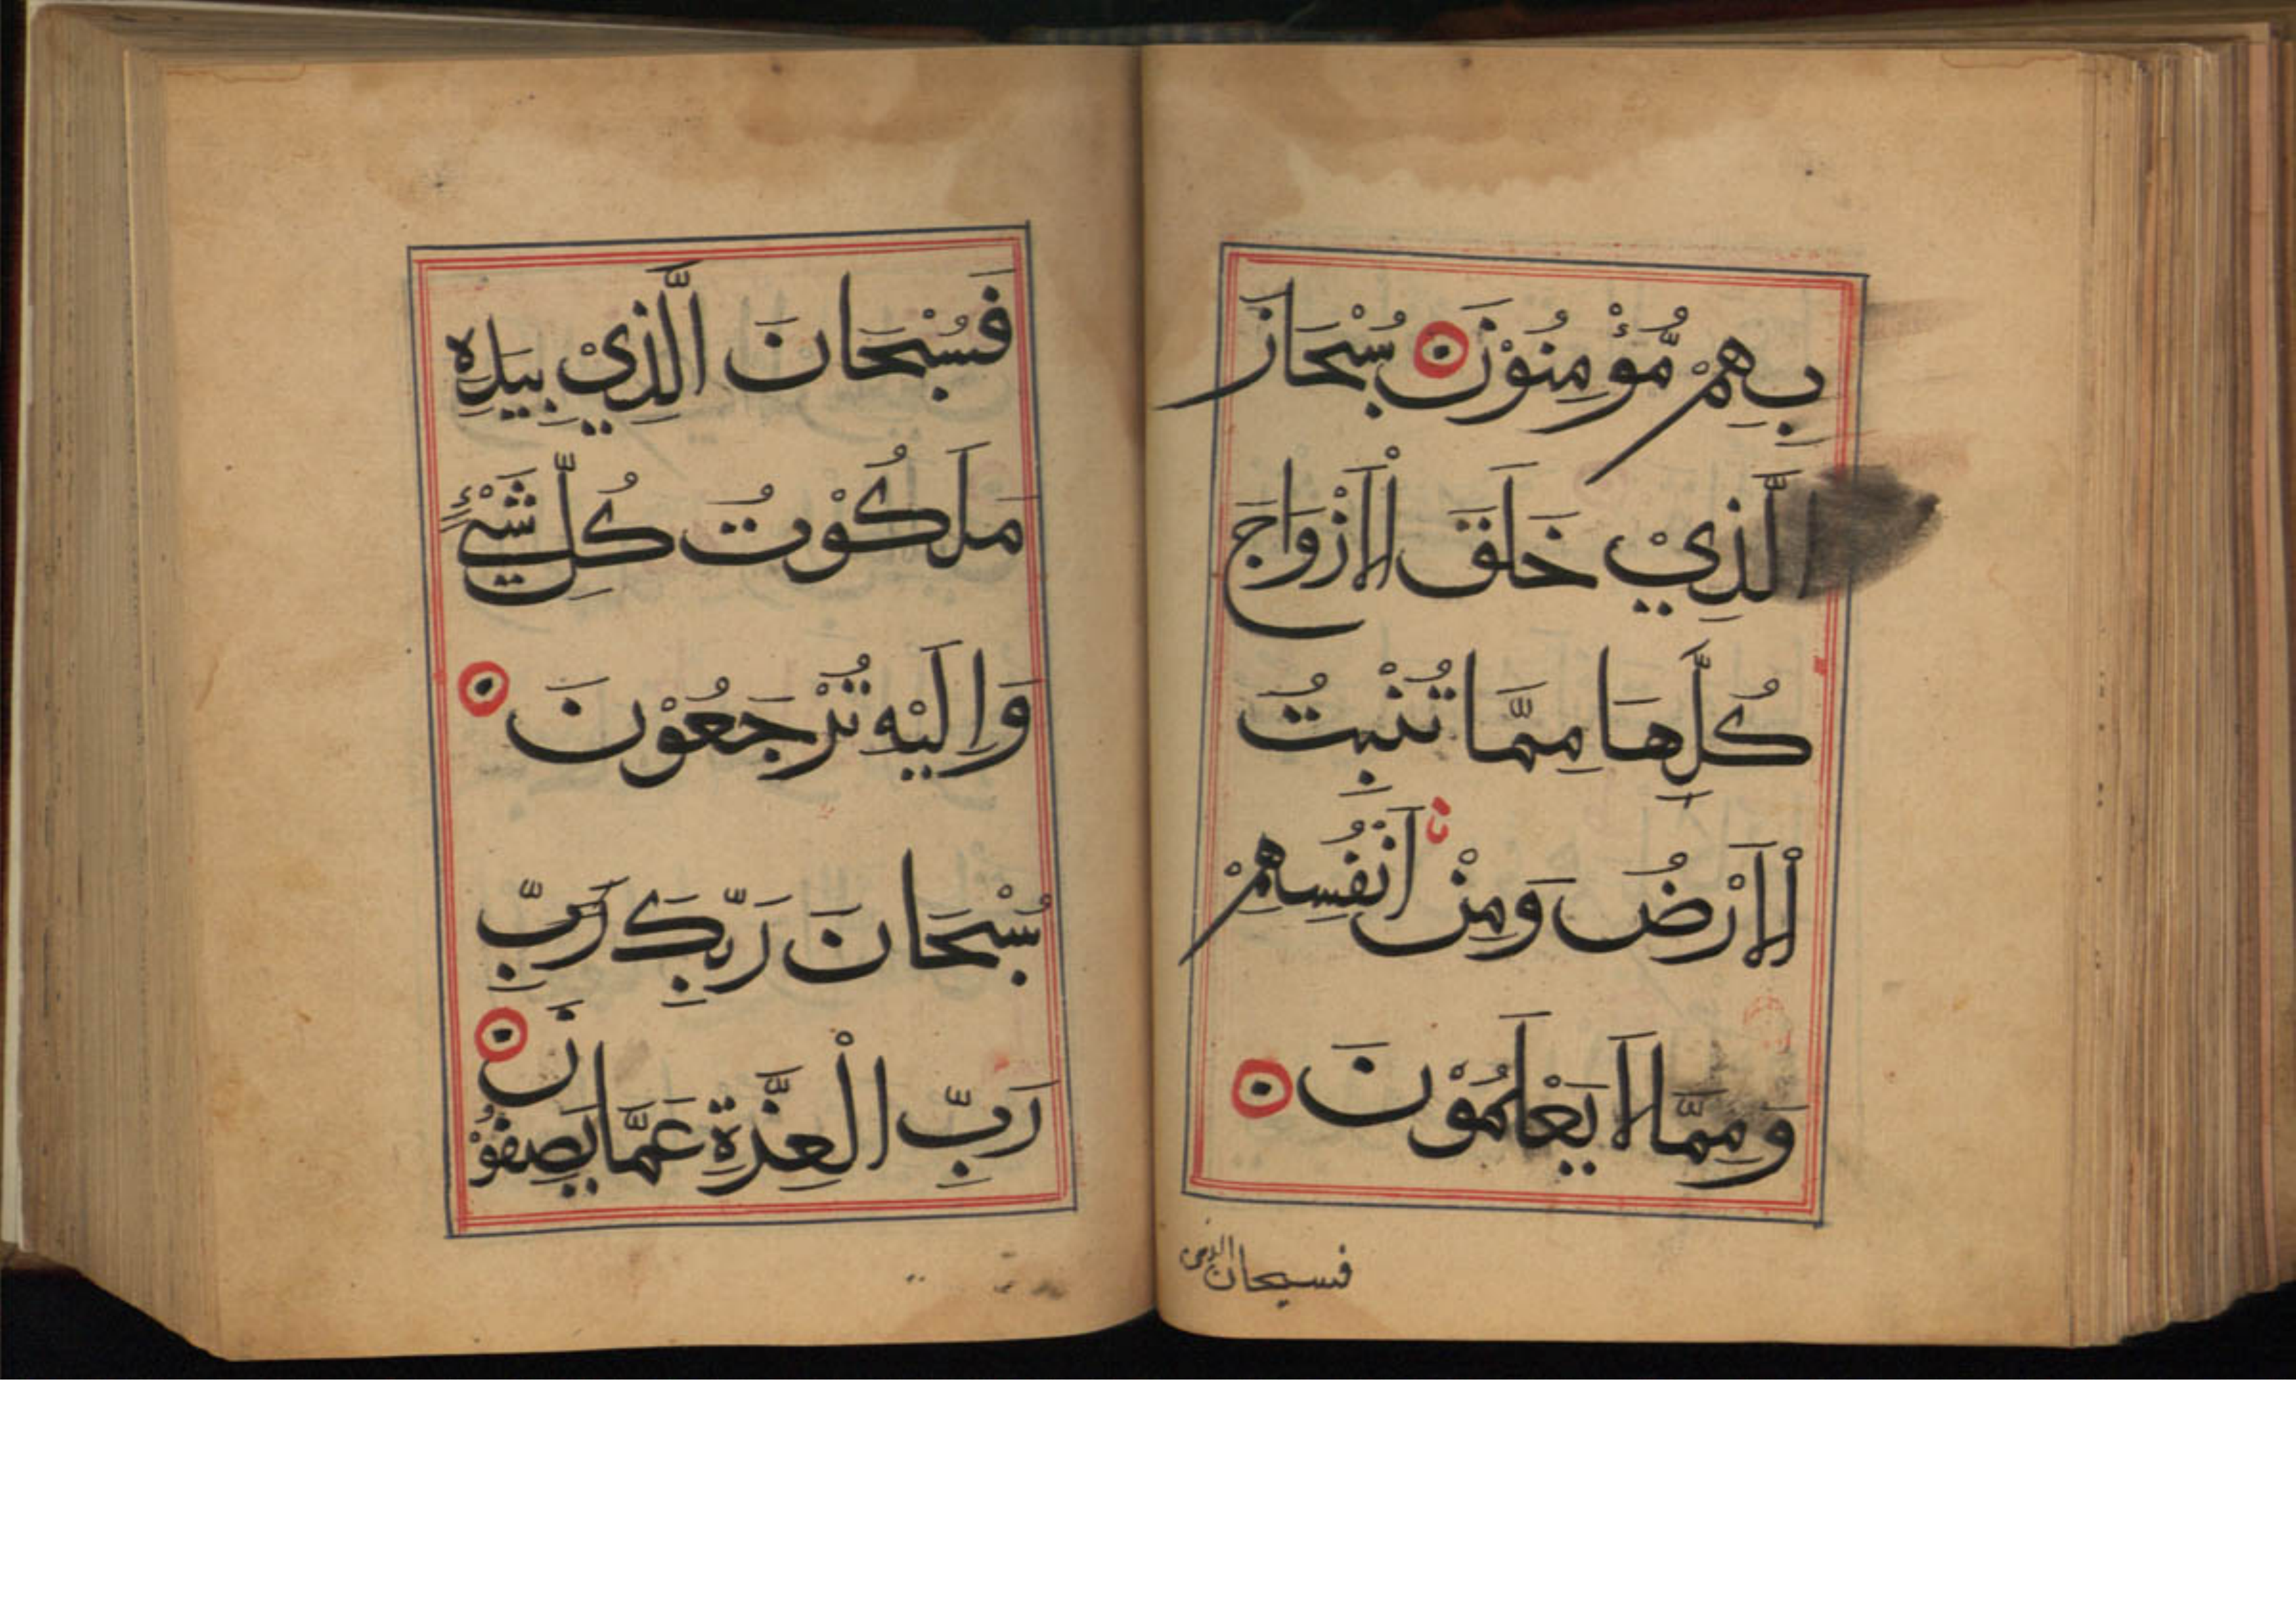 بِهِمْ مُّؤْمِنُوْنَ سُبْحَانَ
الَّذِيْ خَلَقَ الْاَزْوَاجَ
كُلَّهَا مِمَّا تُنْبِتُ
الْاَرْضُ وَمِنْ اَنْفُسِهِمْ
وَمِمَّا لَا يَعْلَمُوْنَ
فسبحان الذى
فَسُبْحَانَ الَّذِيْ بِيَدِهِ
مَلَكُوْتُ كُلِّ شَيْءٍ
وَاِلَيْهِ تُرْجَعُوْنَ
سُبْحَانَ رَبِّكَ رَبِّ
رَبِّ الْعِزَّةِ عَمَّا يَصِفُوْنَ